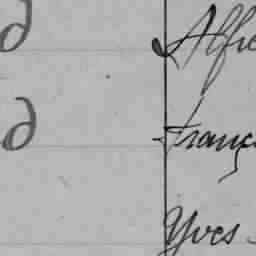 d Alfre
d Franç
Yves